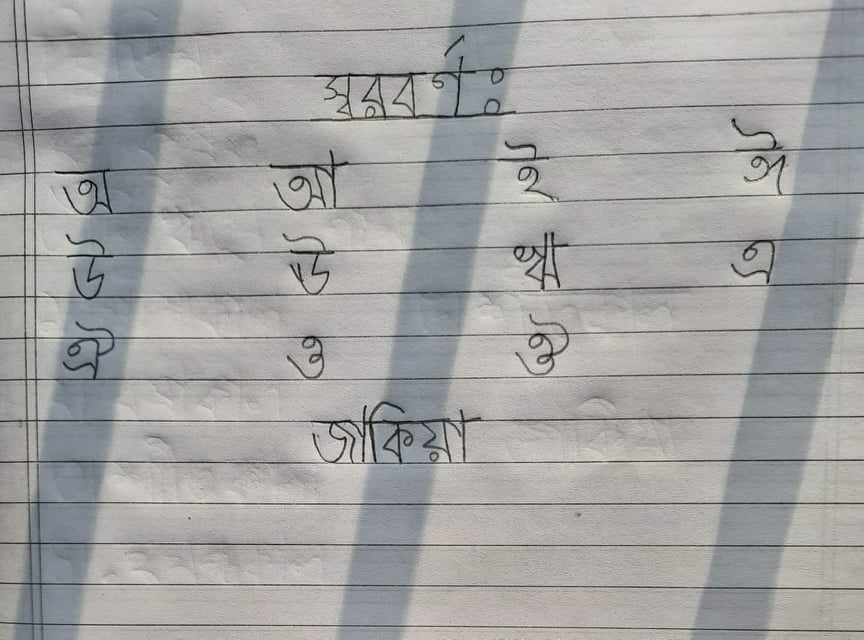 স্বরবর্ণ:
অ আ ই ঈ
উ ঊ ঋ এ
ঐ ও ঔ
জাকিয়া